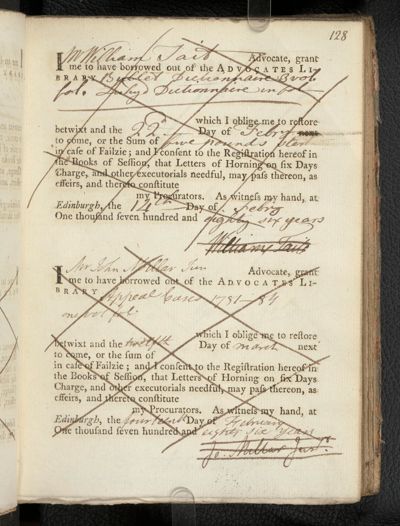 128
I Mr William Tait Advocate, grant
me to have borrowed out of the ADVOCATES LI-
BRARY Dictionnaire 3 vol.
fol. Dictionnaire in fol
which I oblige me to reſtore
betwixt and the 22d Day of Febry next
to come, or the Sum of five pounds Ster
in caſe of Failzie; and I conſent to the Regiſtration hereof in
the Books of Seſſion, that Letters of Horning on ſix Days
Charge, and other executorials needful, may paſs thereon, as
effeirs, and thereto conſtitute
my Procurators. As witneſs my hand, at
Edinburgh, the 14th Day of Febry
One thouſand ſeven hundred and eighty six years
William Tait
I Mr John Millar Jun Advocate, grant
me to have borrowed out of the ADVOCATES LI-
BRARY Appeal Cases 1781-84
one vol fol.
which I oblige me to reſtore
betwixt and the twelfth Day of march next
to come, or the ſum of
in caſe of Failzie; and I conſent to the Regiſtration hereof in
the Books of Seſſion, that Letters of Horning on ſix Days
Charge, and other executorials needful, may paſs thereon, as
effeirs, and thereto conſtitute
my Procurators. As witneſs my hand, at
Edinburgh, the fourteenth Day of February
One thouſand ſeven hundred and eighty six years
Jo. Millar Junr.